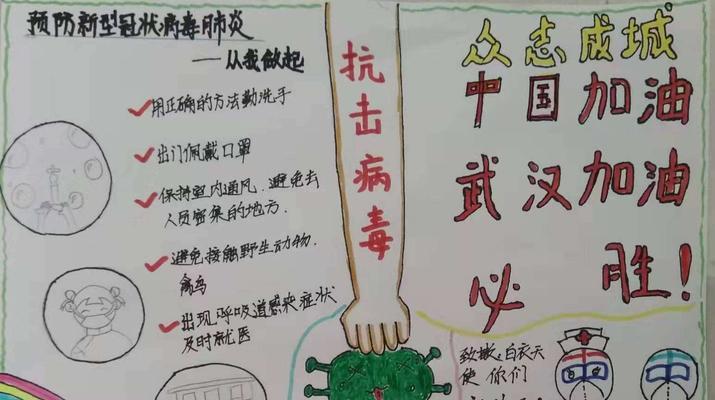 预防新型冠状病毒肺炎
——从我做起
用正确的方法勤洗手
出门佩戴口罩
保持室内通风、避免去
人员密集的地方.
避免接触野生动物.
禽鸟
出现呼吸道感染症状
及时就医
抗击病毒
众志成城
中国加油
武汉加油
必胜！
致敬:白衣天
使 你们